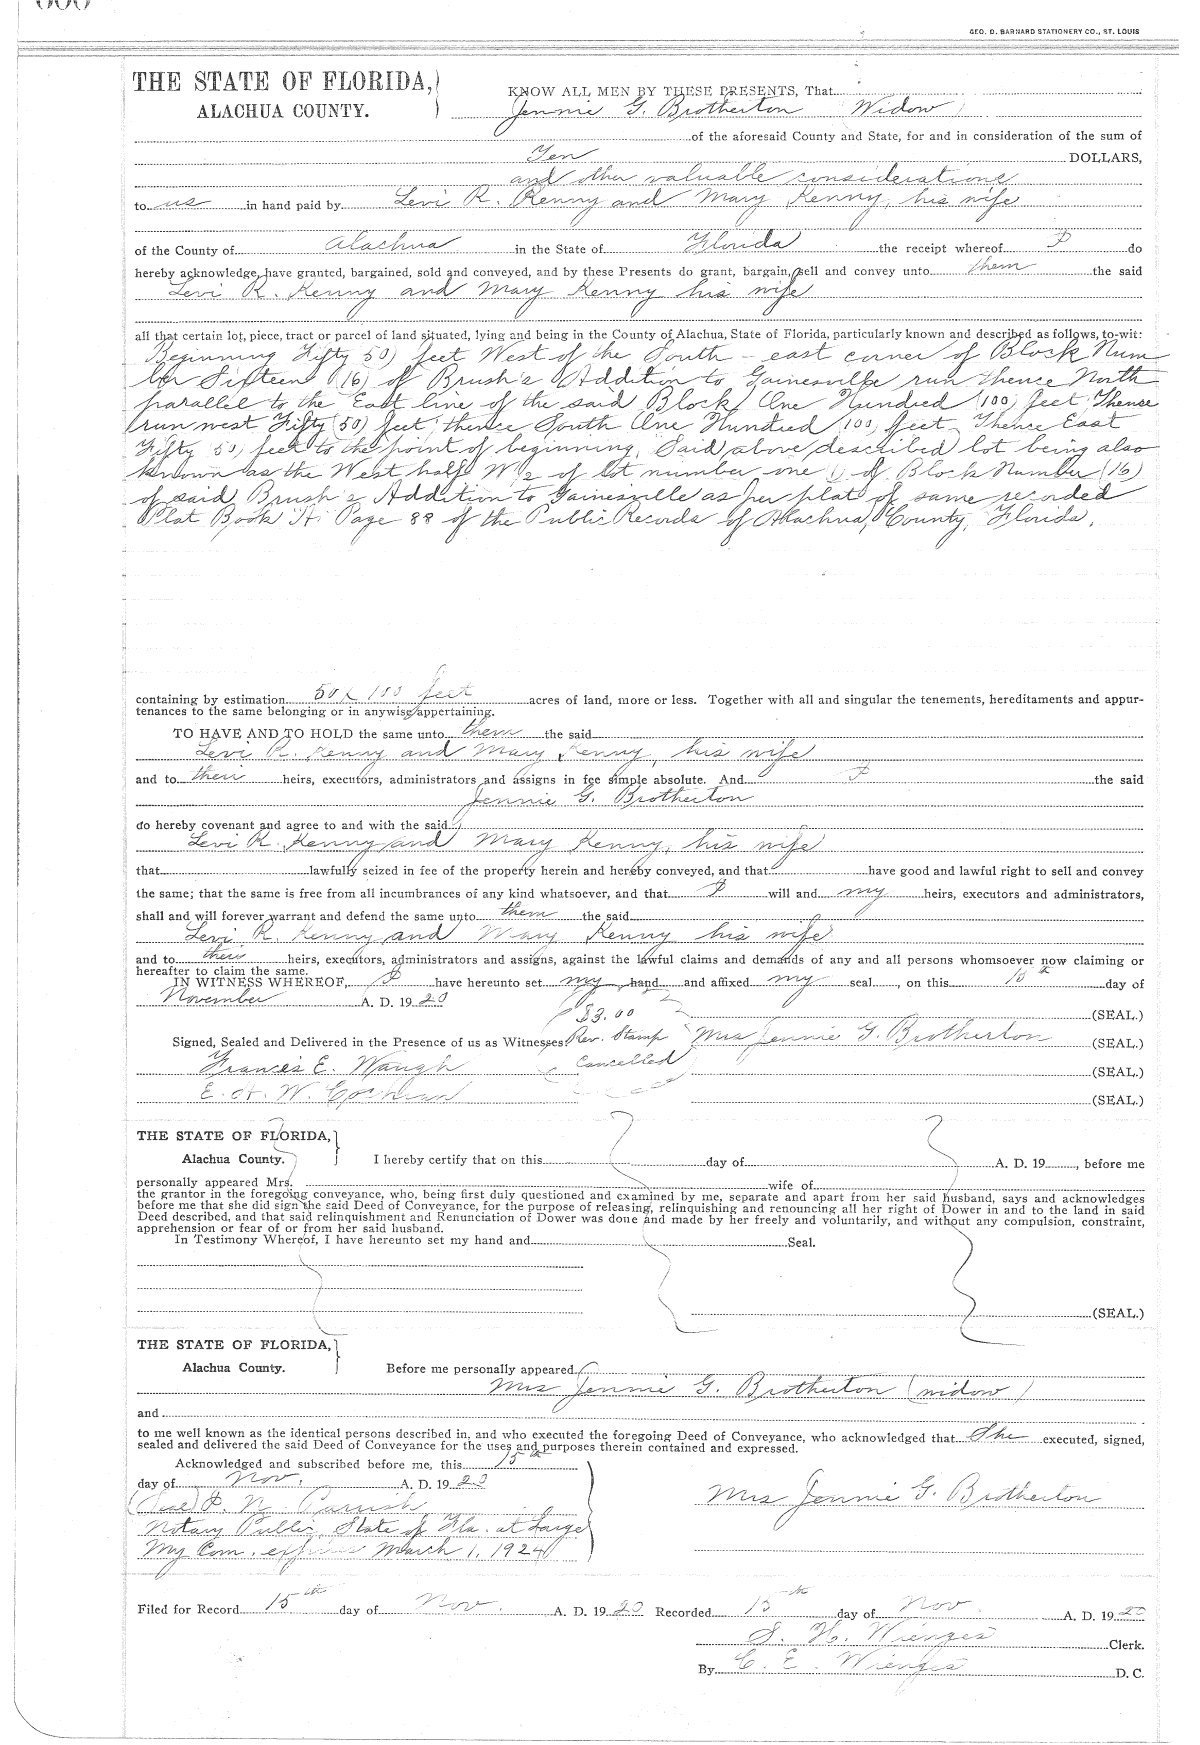 GEO. D. BARNARD STATIONERY CO., ST. LOUIS
THE STATE OF FLORIDA,
ALACHUA COUNTY.
KNOW ALL MEN BY THESE PRESENTS, That
Jennie G. Brotherton (Widow)
of the aforesaid County and State, for and in consideration of the sum of
Ten DOLLARS,
and other valuable considerations
to us in hand paid by Levi R. Kenny and Mary Kenny, his wife
of the County of Alachua in the State of Florida the receipt whereof I do
hereby acknowledge, have granted, bargained, sold and conveyed, and by these Presents do grant, bargain, sell and convey unto them the said
Levi R. Kenny and Mary Kenny his wife
all that certain lot, piece, tract or parcel of land situated, lying and being in the County of Alachua, State of Florida, particularly known and described as follows, to-wit:
Beginning Fifty 50) feet West of the South - east corner of Block Num
ber Sixteen (16) of Brush's Addition to Gainesville run thence North
parallel to the East line of the said Block One Hundred (100) feet Thence
run west Fifty (50) feet, thence South One Hundred (100) feet Thence East
Fifty 50) feet to the point of beginning, Said above described lot being also
known as the West half W½ of lot number one () of Block Number (16)
of said Brush's Addition to Gainesville as per plat of same recorded
Plat Book "A" Page 88 of the Public Records of Alachua, County, Florida.
containing by estimation 50 x 100 feet acres of land, more or less. Together with all and singular the tenements, hereditaments and appur-
tenances to the same belonging or in anywise appertaining.
TO HAVE AND TO HOLD the same unto them the said
Levi R. Kenny and Mary Kenny, his wife
and to their heirs, executors, administrators and assigns in fee simple absolute. And I the said
Jennie G. Brotherton
do hereby covenant and agree to and with the said
Levi R. Kenny and Mary Kenny, his wife
that lawfully seized in fee of the property herein and hereby conveyed, and that have good and lawful right to sell and convey
the same; that the same is free from all incumbrances of any kind whatsoever, and that I will and my heirs, executors and administrators,
shall and will forever warrant and defend the same unto them the said
Levi R. Kenny and Mary Kenny his wife
and to their heirs, executors, administrators and assigns, against the lawful claims and demands of any and all persons whomsoever now claiming or
hereafter to claim the same.
IN WITNESS WHEREOF, I have hereunto set my hand and affixed my seal, on this 15th day of
November A. D. 1920
$3.00 (SEAL.)
Signed, Sealed and Delivered in the Presence of us as Witnesses: Rev. Stamp Mrs Jennie G. Brotherton (SEAL.)
Frances E. Waugh Cancelled (SEAL.)
E. A. W. Cochran (SEAL.)
THE STATE OF FLORIDA,
Alachua County. I hereby certify that on this day of A. D. 19 , before me
personally appeared Mrs. wife of
the grantor in the foregoing conveyance, who, being first duly questioned and examined by me, separate and apart from her said husband, says and acknowledges
before me that she did sign the said Deed of Conveyance, for the purpose of releasing, relinquishing and renouncing all her right of Dower in and to the land in said
Deed described, and that said relinquishment and Renunciation of Dower was done and made by her freely and voluntarily, and without any compulsion, constraint,
apprehension or fear of or from her said husband.
In Testimony Whereof, I have hereunto set my hand and Seal.
(SEAL.)
THE STATE OF FLORIDA,
Alachua County. Before me personally appeared
Mrs Jennie G. Brotherton (widow)
and
to me well known as the identical persons described in, and who executed the foregoing Deed of Conveyance, who acknowledged that She executed, signed,
sealed and delivered the said Deed of Conveyance for the uses and purposes therein contained and expressed.
Acknowledged and subscribed before me, this 15th
day of Nov. A. D. 1920
(Seal) Parrish Mrs Jennie G. Brotherton
Notary Public, State of Fla. at Large
My Com. expires March 1, 1924
Filed for Record 15th day of Nov. A. D. 1920 Recorded 15th day of Nov. A. D. 1920
S. H. Wienges Clerk.
By C. E. Wienges D. C.